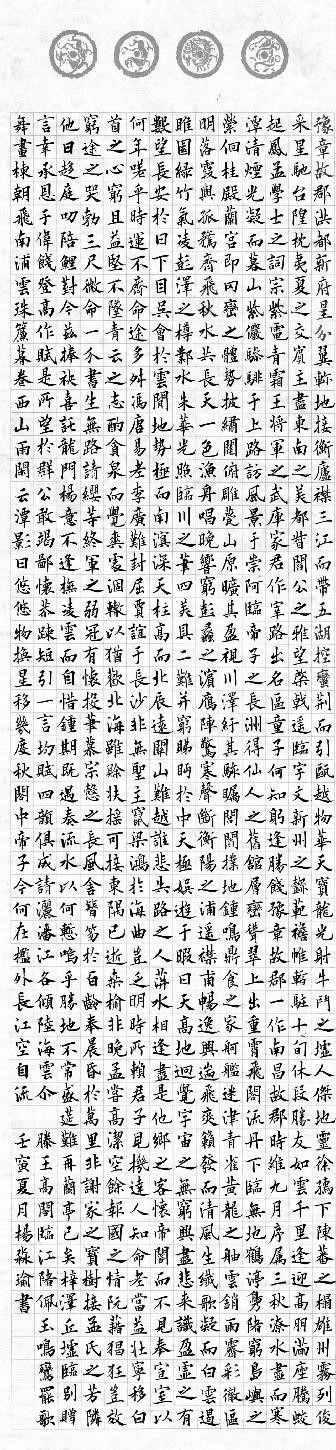 豫章故郡洪都新府星分翼軫地接衡廬襟三江而帶五湖控蠻荊而引甌越物華天寶龍光射牛斗之墟人傑地靈徐孺下陳蕃之榻雄州霧列俊
采星馳台隍枕夷夏之交賓主盡東南之美都督閻公之雅望棨戟遙臨宇文新州之懿範襜帷暫駐十旬休暇勝友如雲千里逢迎高朋滿座騰蛟
起鳳孟學士之詞宗紫電青霜王將軍之武庫家君作宰路出名區童子何知躬逢勝餞時維九月序屬三秋潦水盡而寒
潭清煙光凝而暮山紫儼驂騑於上路訪風景於崇阿臨帝子之長洲得仙人之舊館層巒聳翠上出重霄飛閣流丹下臨無地鶴汀鳧渚窮島嶼之
縈迴桂殿蘭宮即岡巒之體勢披繡闥俯雕甍山原曠其盈視川澤紆其駭矚閭閻撲地鐘鳴鼎食之家舸艦迷津青雀黃龍之舳雲銷雨霽彩徹區
明落霞與孤鶩齊飛秋水共長天一色漁舟唱晚響窮彭蠡之濱雁陣驚寒聲斷衡陽之浦遙襟甫暢逸興遄飛爽籟發而清風生纖歌凝而白雲遏
睢園綠竹氣凌彭澤之樽鄴水朱華光照臨川之筆四美具二難并窮睇眄於中天極娛遊於暇日天高地迥覺宇宙之無窮興盡悲來識盈虛之有
數望長安於日下目吳會於雲間地勢極而南溟深天柱高而北辰遠關山難越誰悲失路之人萍水相逢盡是他鄉之客懷帝閽而不見奉宣室以
何年嗟乎時運不齊命途多舛馮唐易老李廣難封屈賈誼於長沙非無聖主竄梁鴻於海曲豈乏明時所賴君子見機達人知命老當益壯寧移白
首之心窮且益堅不墜青雲之志酌貪泉而覺爽處涸轍以猶懽北海雖賒扶搖可接東隅已逝桑榆非晚孟嘗高潔空餘報國之情阮籍猖狂豈放
窮途之哭勃三尺微命一介書生無路請纓等終軍之弱冠有懷投筆慕宗愨之長風舍簪笏於百齡奉晨昏於萬里非謝家之寶樹接孟氏之芳隣
他日趨庭叨陪鯉對今茲捧袂喜託龍門楊意不逢撫凌雲而自惜鍾期既遇奏流水以何慙嗚乎勝地不常盛筵難再蘭亭已矣梓澤丘墟臨別贈
言幸承恩於偉餞登高作賦是所望於群公敢竭鄙懷恭疎短引一言均賦四韻俱成請灑潘江各傾陸海云尒 滕王高閣臨江渚佩玉鳴鸞罷歌
舞畫棟朝飛南浦雲珠簾暮卷西山雨閑雲潭影日悠悠物換星移幾度秋閣中帝子今何在檻外長江空自流 壬寅夏月楊淼瑜書